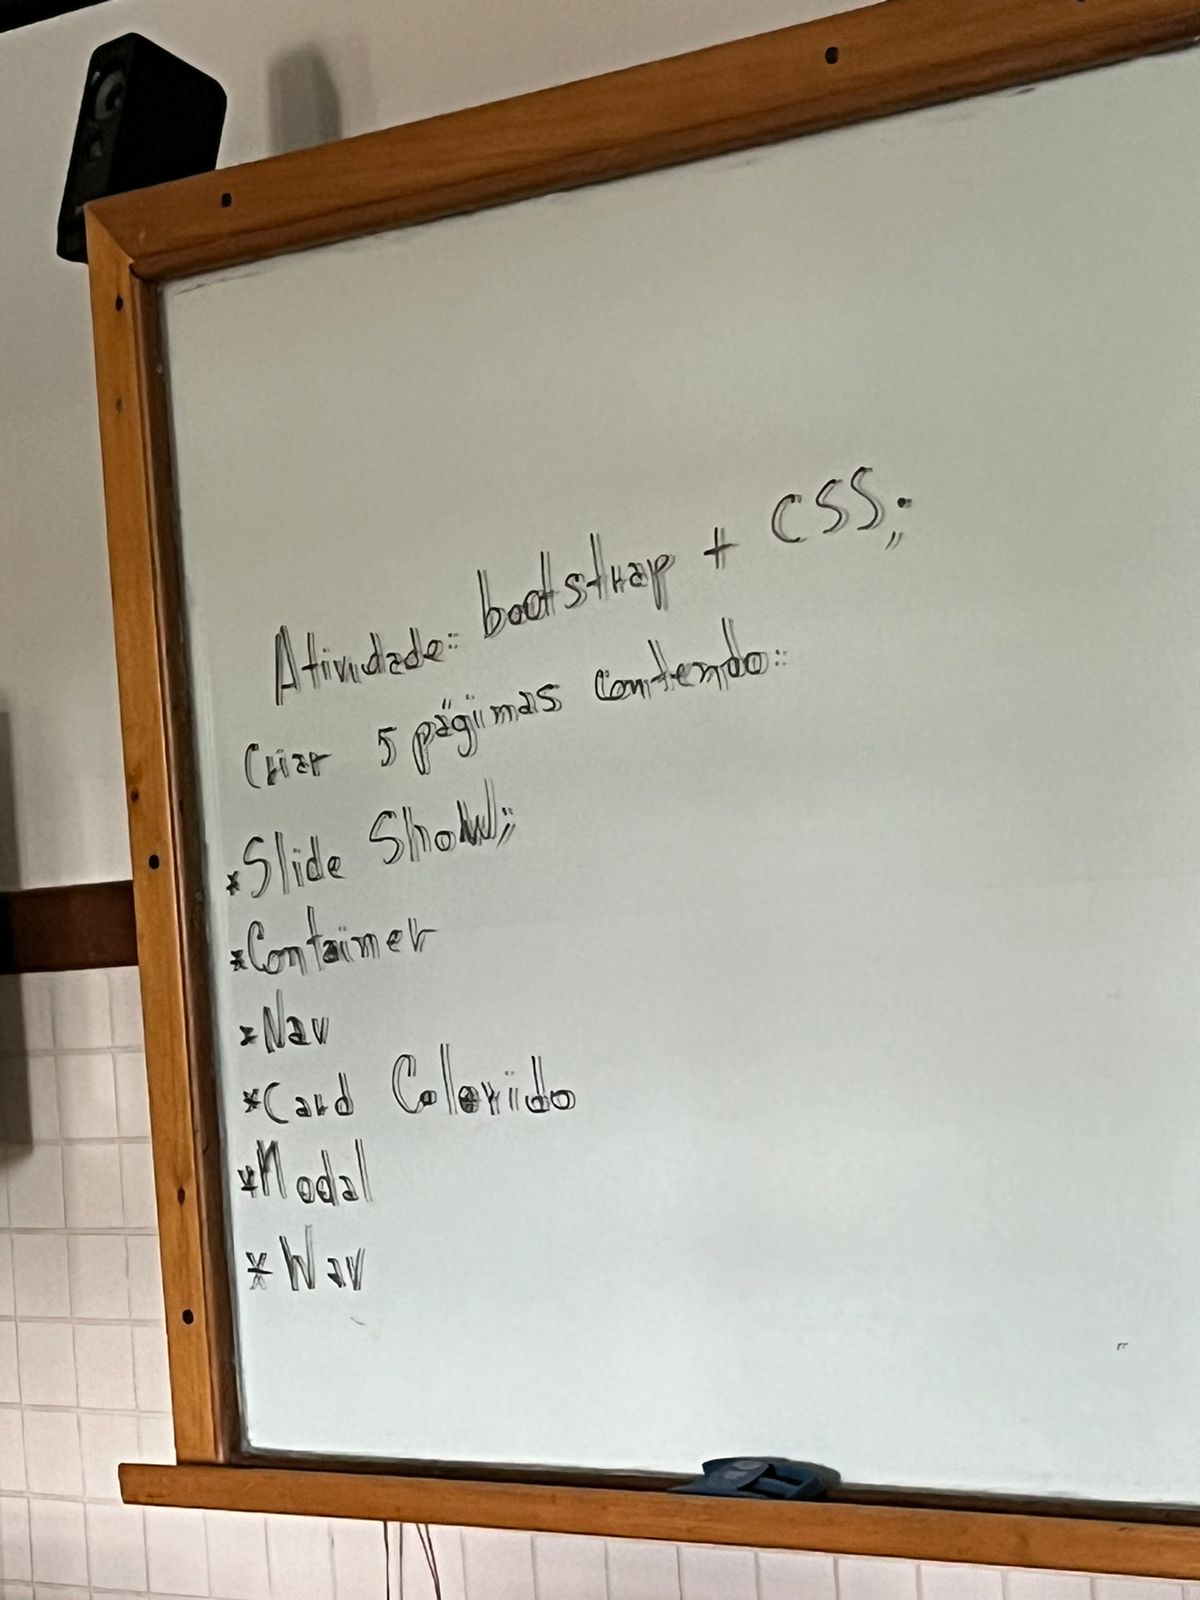 Atividade: bootstrap + CSS.;
Criar 5 páginas contendo:
*Slide Show;
*Container
*Nav
*Card Colorido
*Modal
*Nav